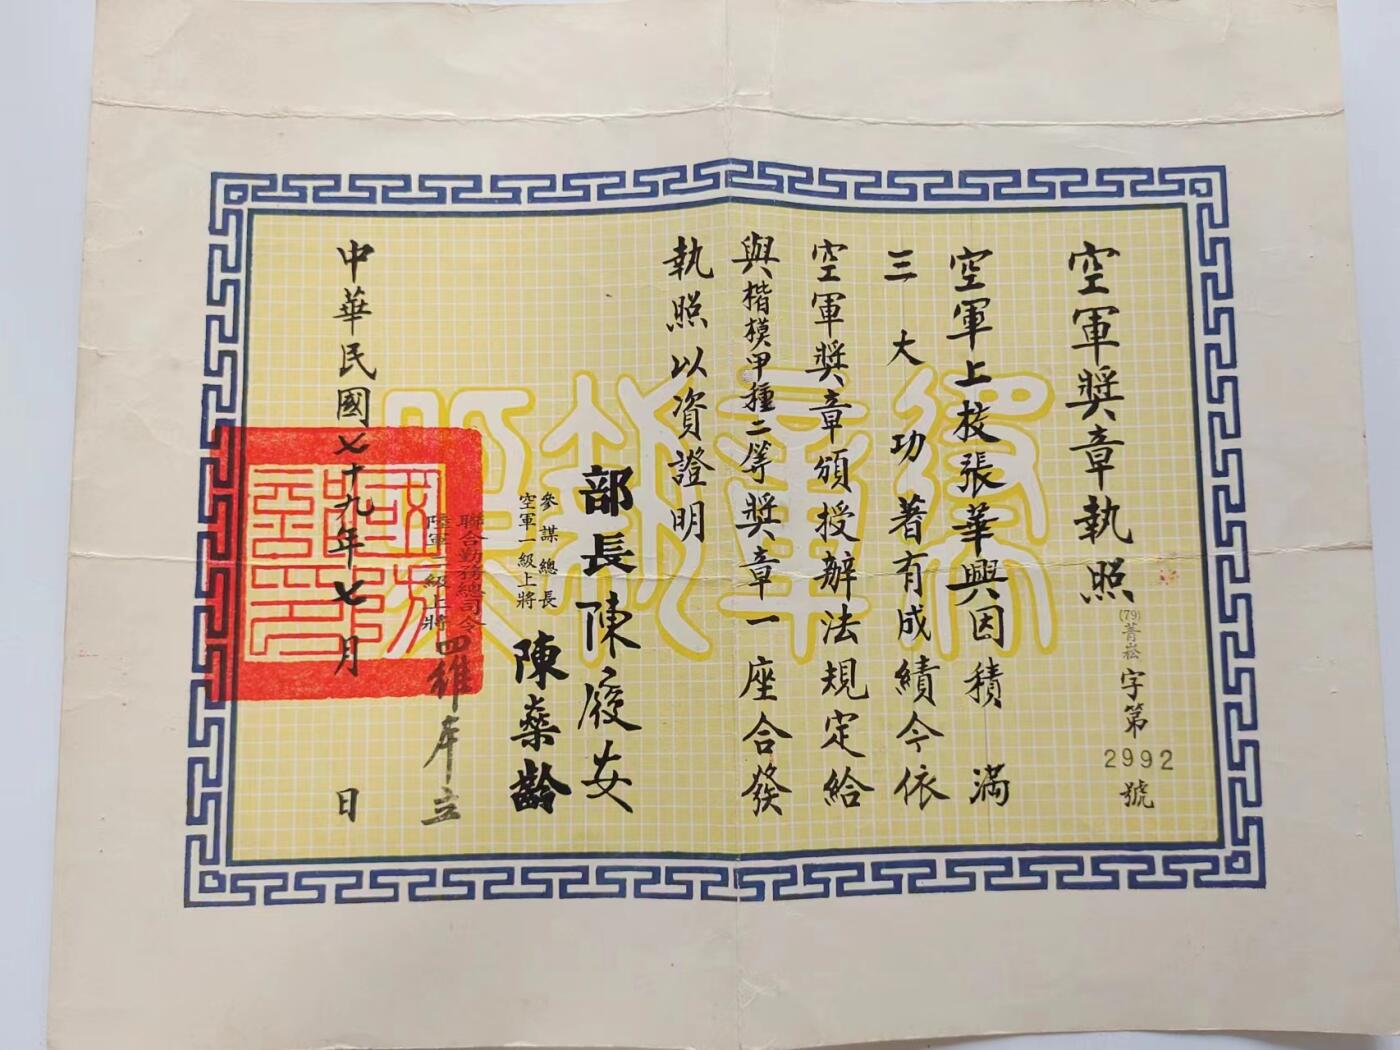 空軍獎章執照
(79)菁崧字第2992號
空軍上校張華興因積滿
三大功著有成績今依
空軍獎章頒授辦法規定給
與楷模甲種二等獎章一座合發
執照以資證明
部長陳履安
參謀總長
空軍一級上將
陳燊齡
聯合勤務總司令
陸軍二級上將
中華民國七十九年七月日